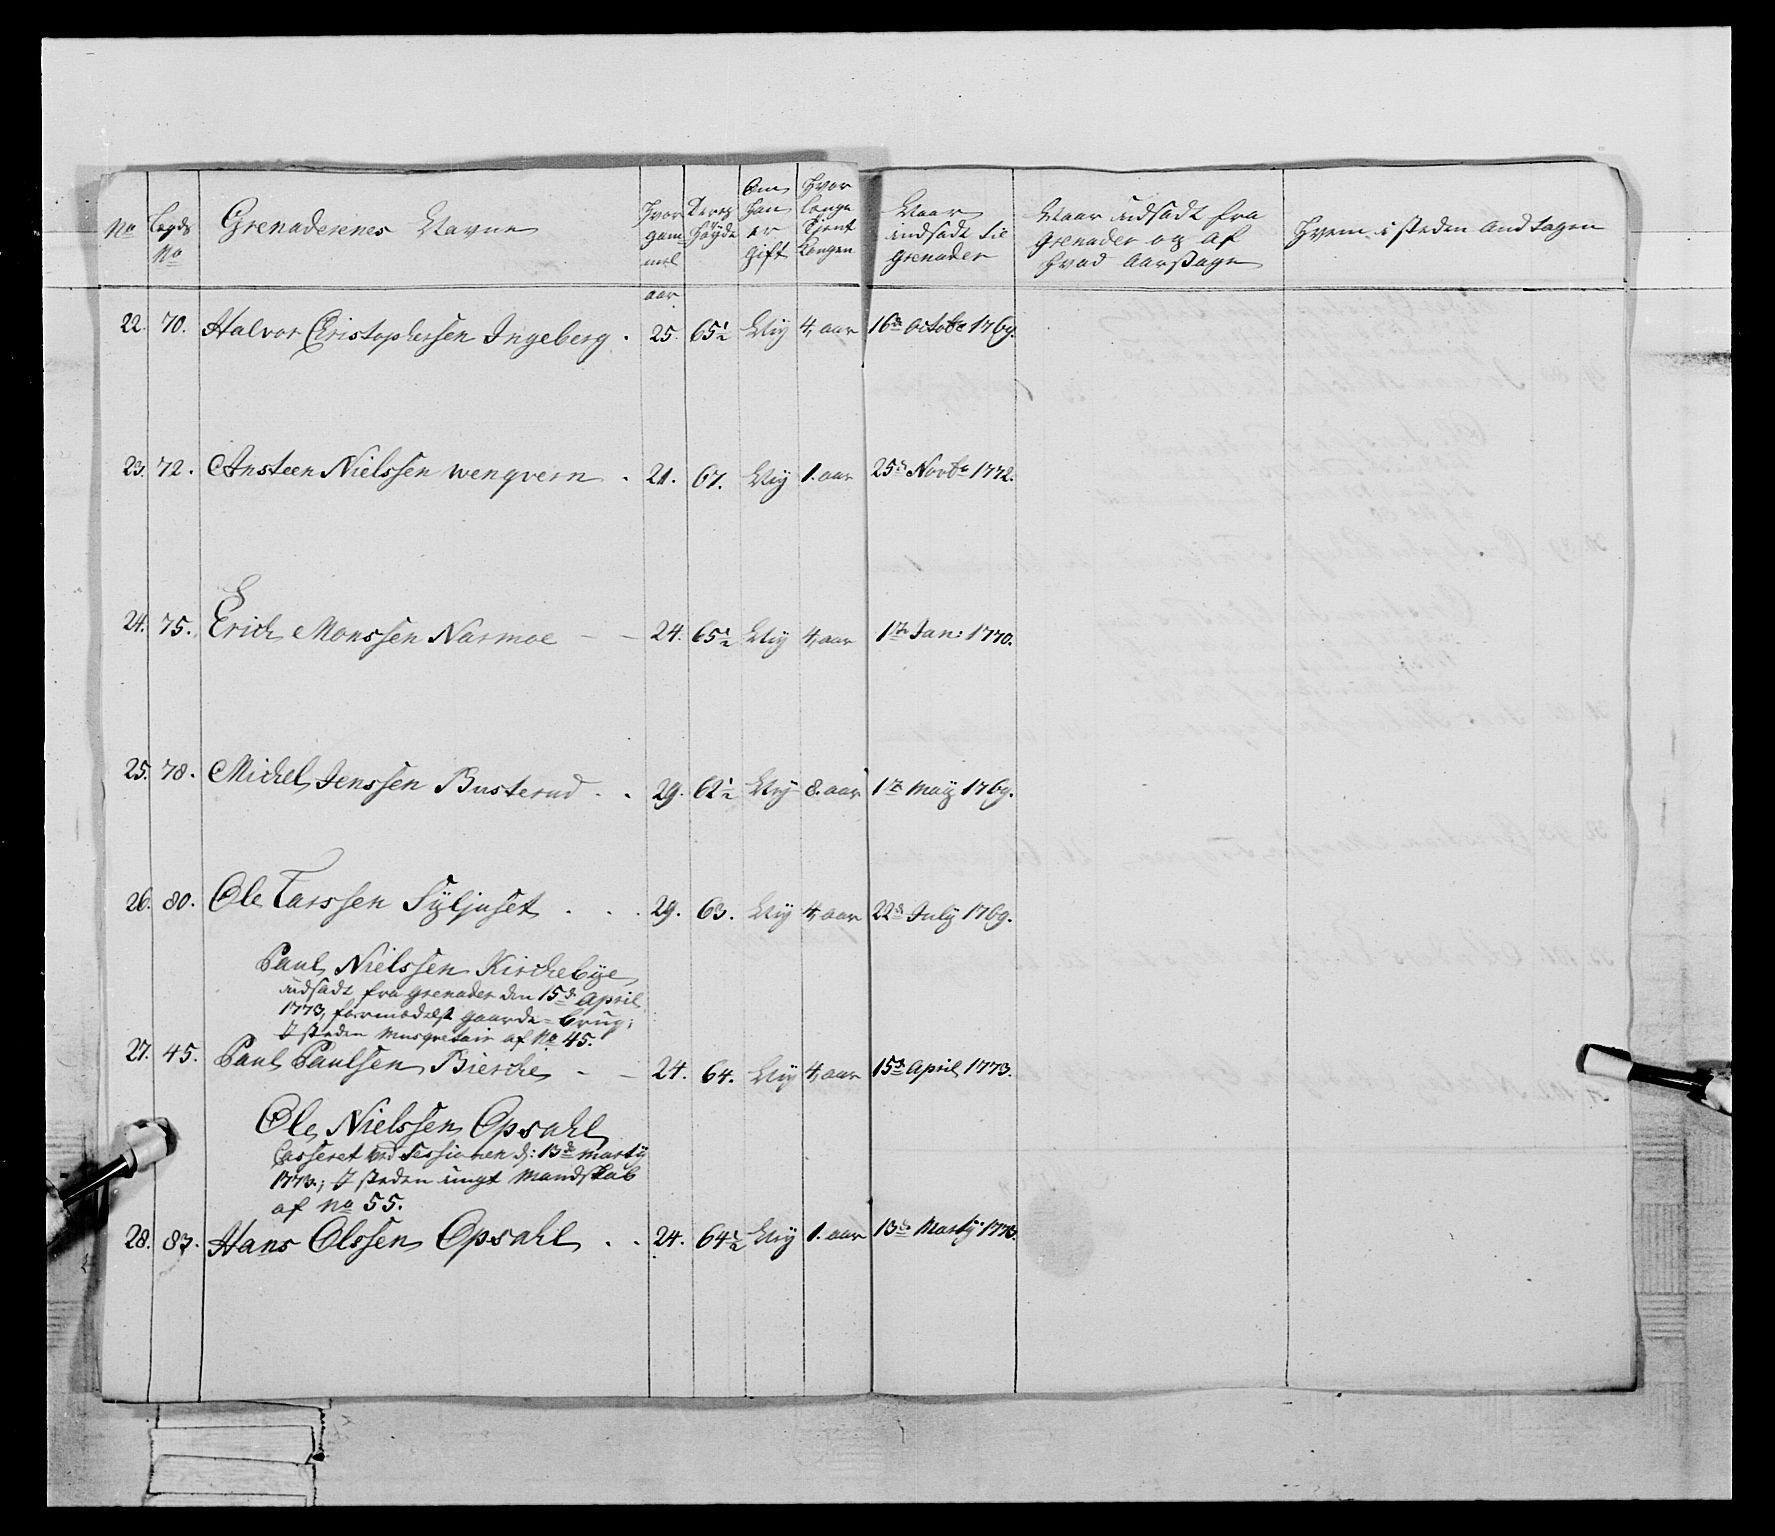 No
Legds No
Grenaderenes Navne
Hvor gammel aar
Deres Høyde
Om Han er Gift
Hvor Lenge Tient Kongen
Naar indsadt til Grenader
Naar udsadt fra Grenader og af hvad Aarsage
Hvem i steden Andtagen
22. 70. Halvor Christophersen Ingeberg . 25. 65½ Nej 4 aar 16de Octobr 1769.
23. 72. Ansteen Nielssen Wenqvern . 21. 67. Nej 1. aar 25de Novbr 1772.
24. 75. Erich Monssen Narmoe - - 24. 65½ Nej 4 aar 1te Jan: 1770.
25. 78. Michel Jenssen Busterud . . 29. 62½ Nej 8. aar 1te May 1769.
26. 80. Ole Larssen Syljuset . . . 29. 63. Nej 4 aar 22de July 1769.
Paul Nielssen Kirchebye
udsadt fra Grenader den 15de April
1773, formedelst gaarde-brug;
I steden Musqvetair af No 45.
27. 45. Paul Paulsen Bierche - - 24. 64. Nej 4 aar 15de April 1773.
Ole Nielssen Opsahl
Casseret ved Sessionen d: 13de Martij
1773.; I steden ungt Mandskab
af No 55.
28. 83. Hans Olssen Opsahl . . 24. 64½ Nej 1. aar 13de Martij 1773.